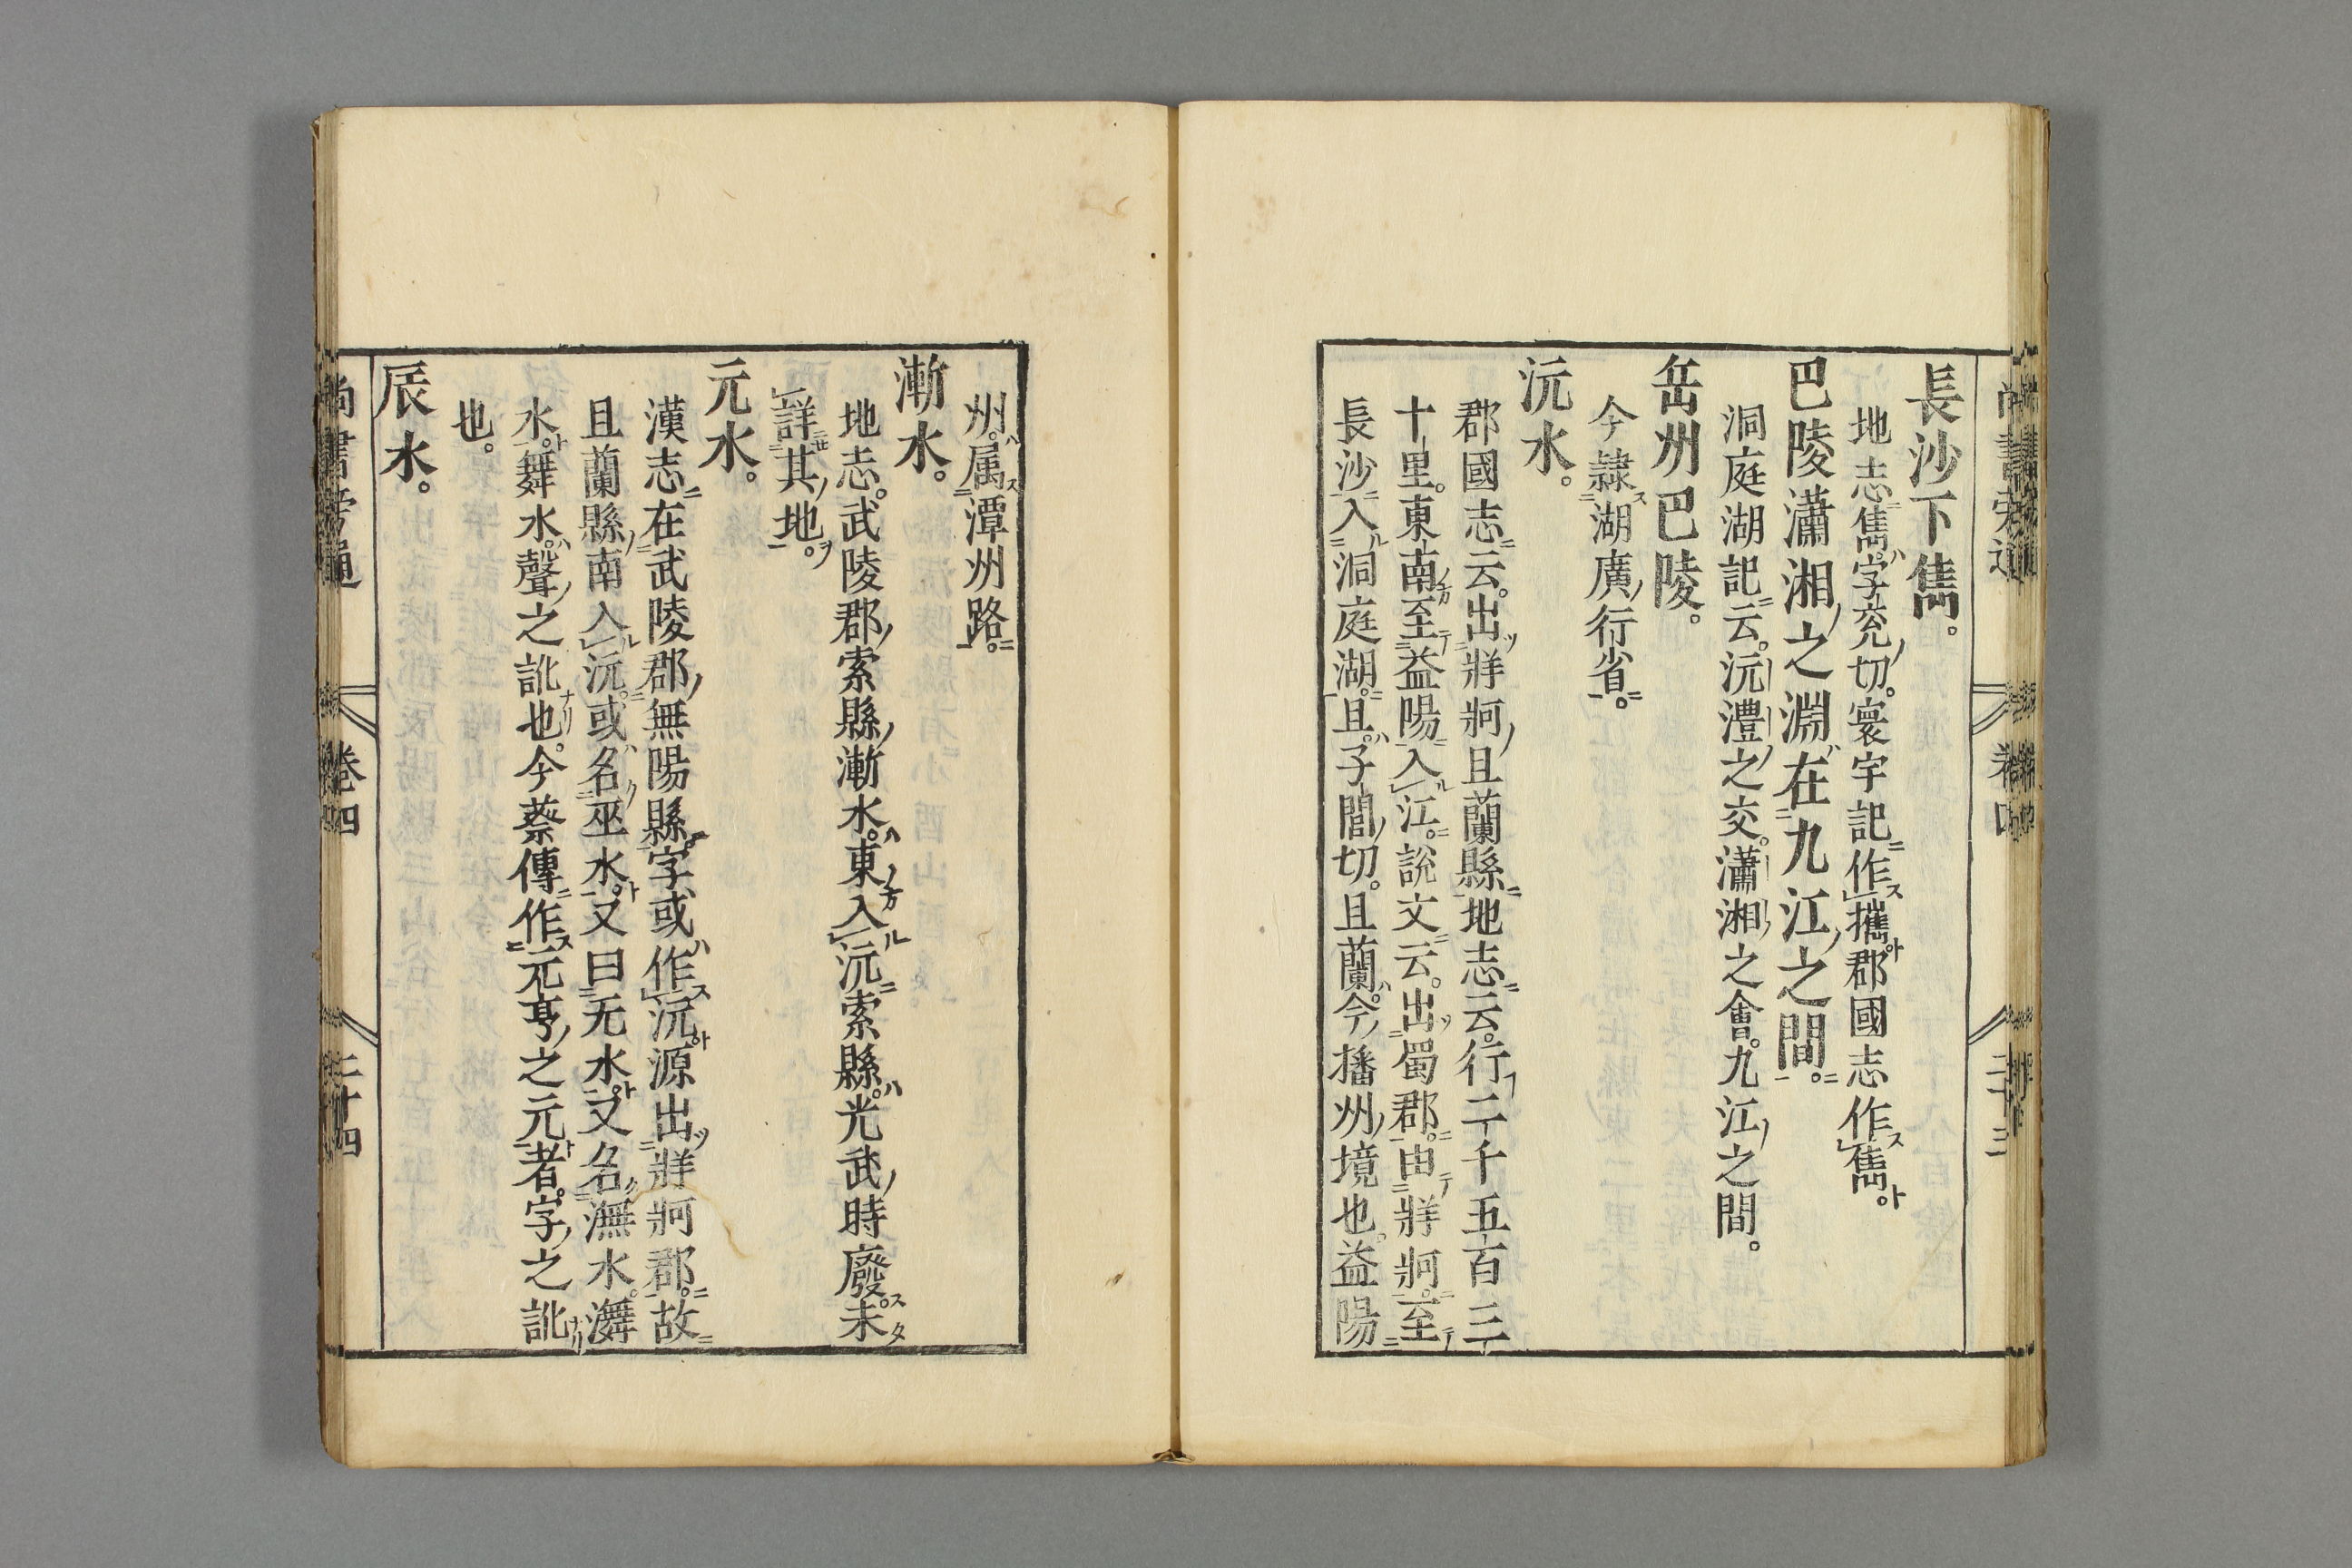 長沙下雋。
地志雋字兗切。寰宇記作㩦郡國志作雋。
巴陵瀟湘之淵在九江之間。
洞庭湖記云。沅澧之交。瀟湘之會。九江之間。
岳州巴陵。
今隸湖廣行省。
沅水。
郡國志云。出牂牁且蘭縣地志云。行二千五百三
十里。東南至益陽入江。說文云。出蜀郡。由牂牁。至
長沙入洞庭湖。且子閭切。且蘭。今播州境也。益陽
州。属潭州路。
漸水。
地志。武陵郡索縣漸水。東入沅索縣。光武時廢。未
詳其地。
元水。
漢志在武陵郡無陽縣。字或作沅源出牂牁郡。故
且蘭縣南入沅。或名巫水。又曰无水。又名潕水。㵲
水。舞水。聲之訛也。今蔡傳作元亨之元者。字之訛
也。
辰水。
尚書旁通 卷四 二十四